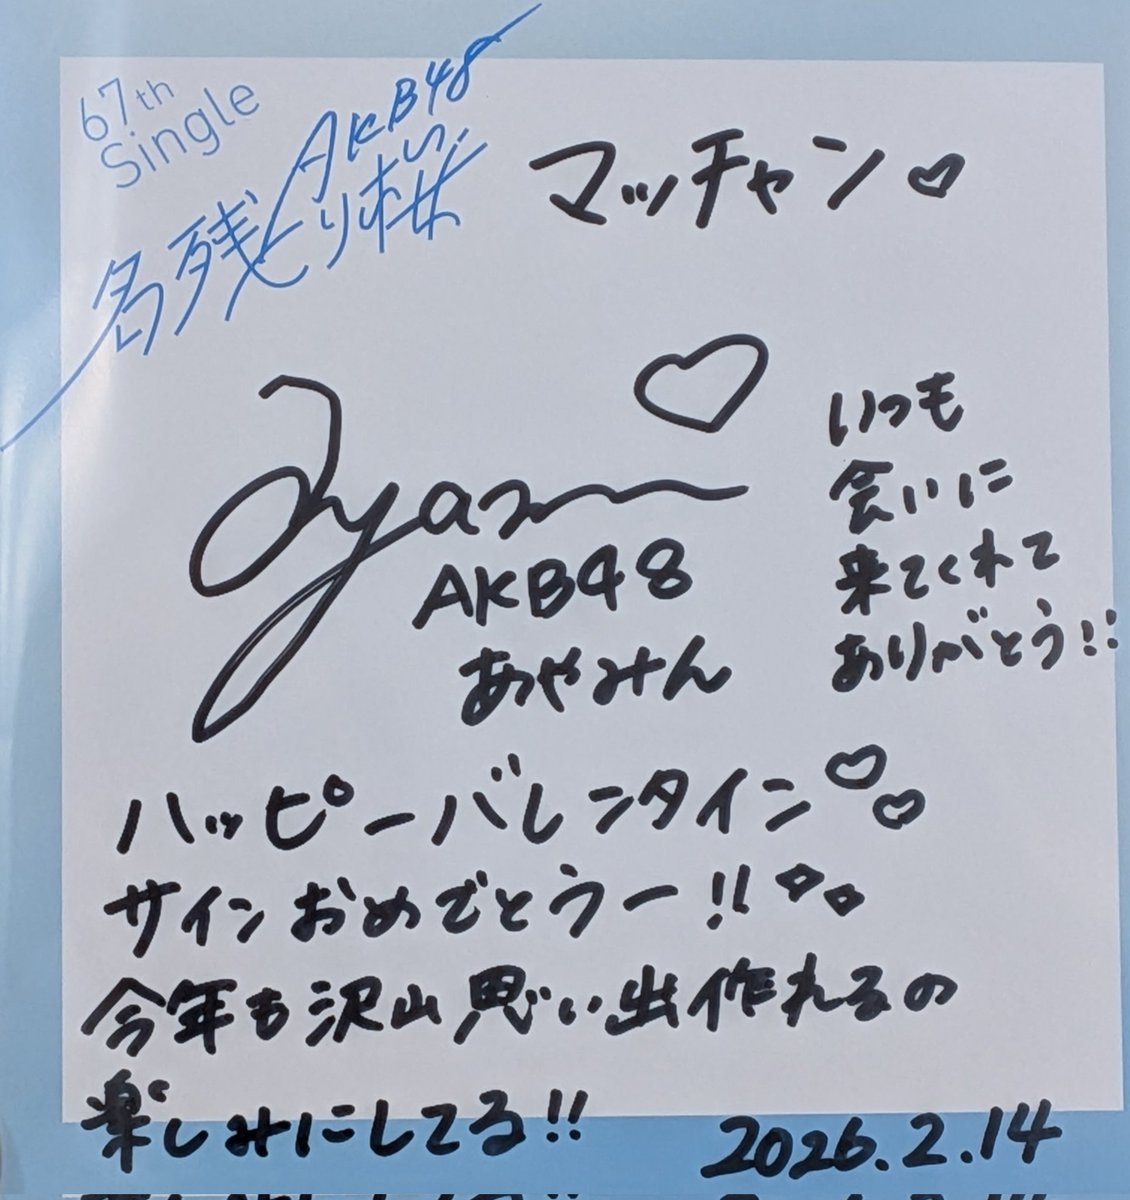 67th
Single
AKB48
名残り桜
マッチャン♡
Ayami
AKB48
あやみん
いつも
会いに
来てくれて
ありがとう!!
ハッピーバレンタイン♡♡
サインおめでとうー!!
今年も沢山思い出作れるの
楽しみにしてる!!
2026.2.14